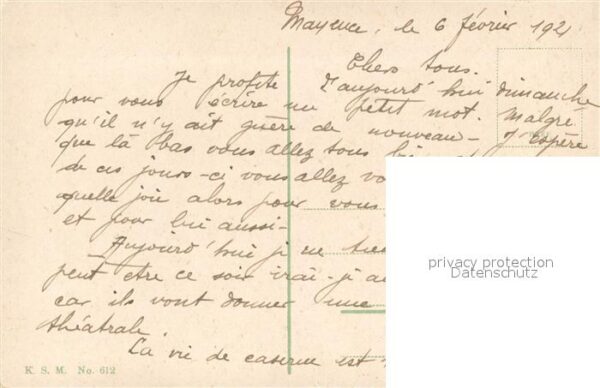 Mayence, le 6 février 1921
Chers tous.
Je profite d'aujourd'hui dimanche
pour vous écrire un petit mot. Malgré
qu'il n'y ait guère de nouveau - J'espère
que là bas vous allez tous
de ces jours-ci vous allez
quelle joie alors pour vous
et pour lui aussi -
Aujourd'hui je ne
peut être ce soir irai-je au
car ils vont donner une
théâtrale.
La vie de caserne est
privacy protection
Datenschutz
K. S. M. No. 612